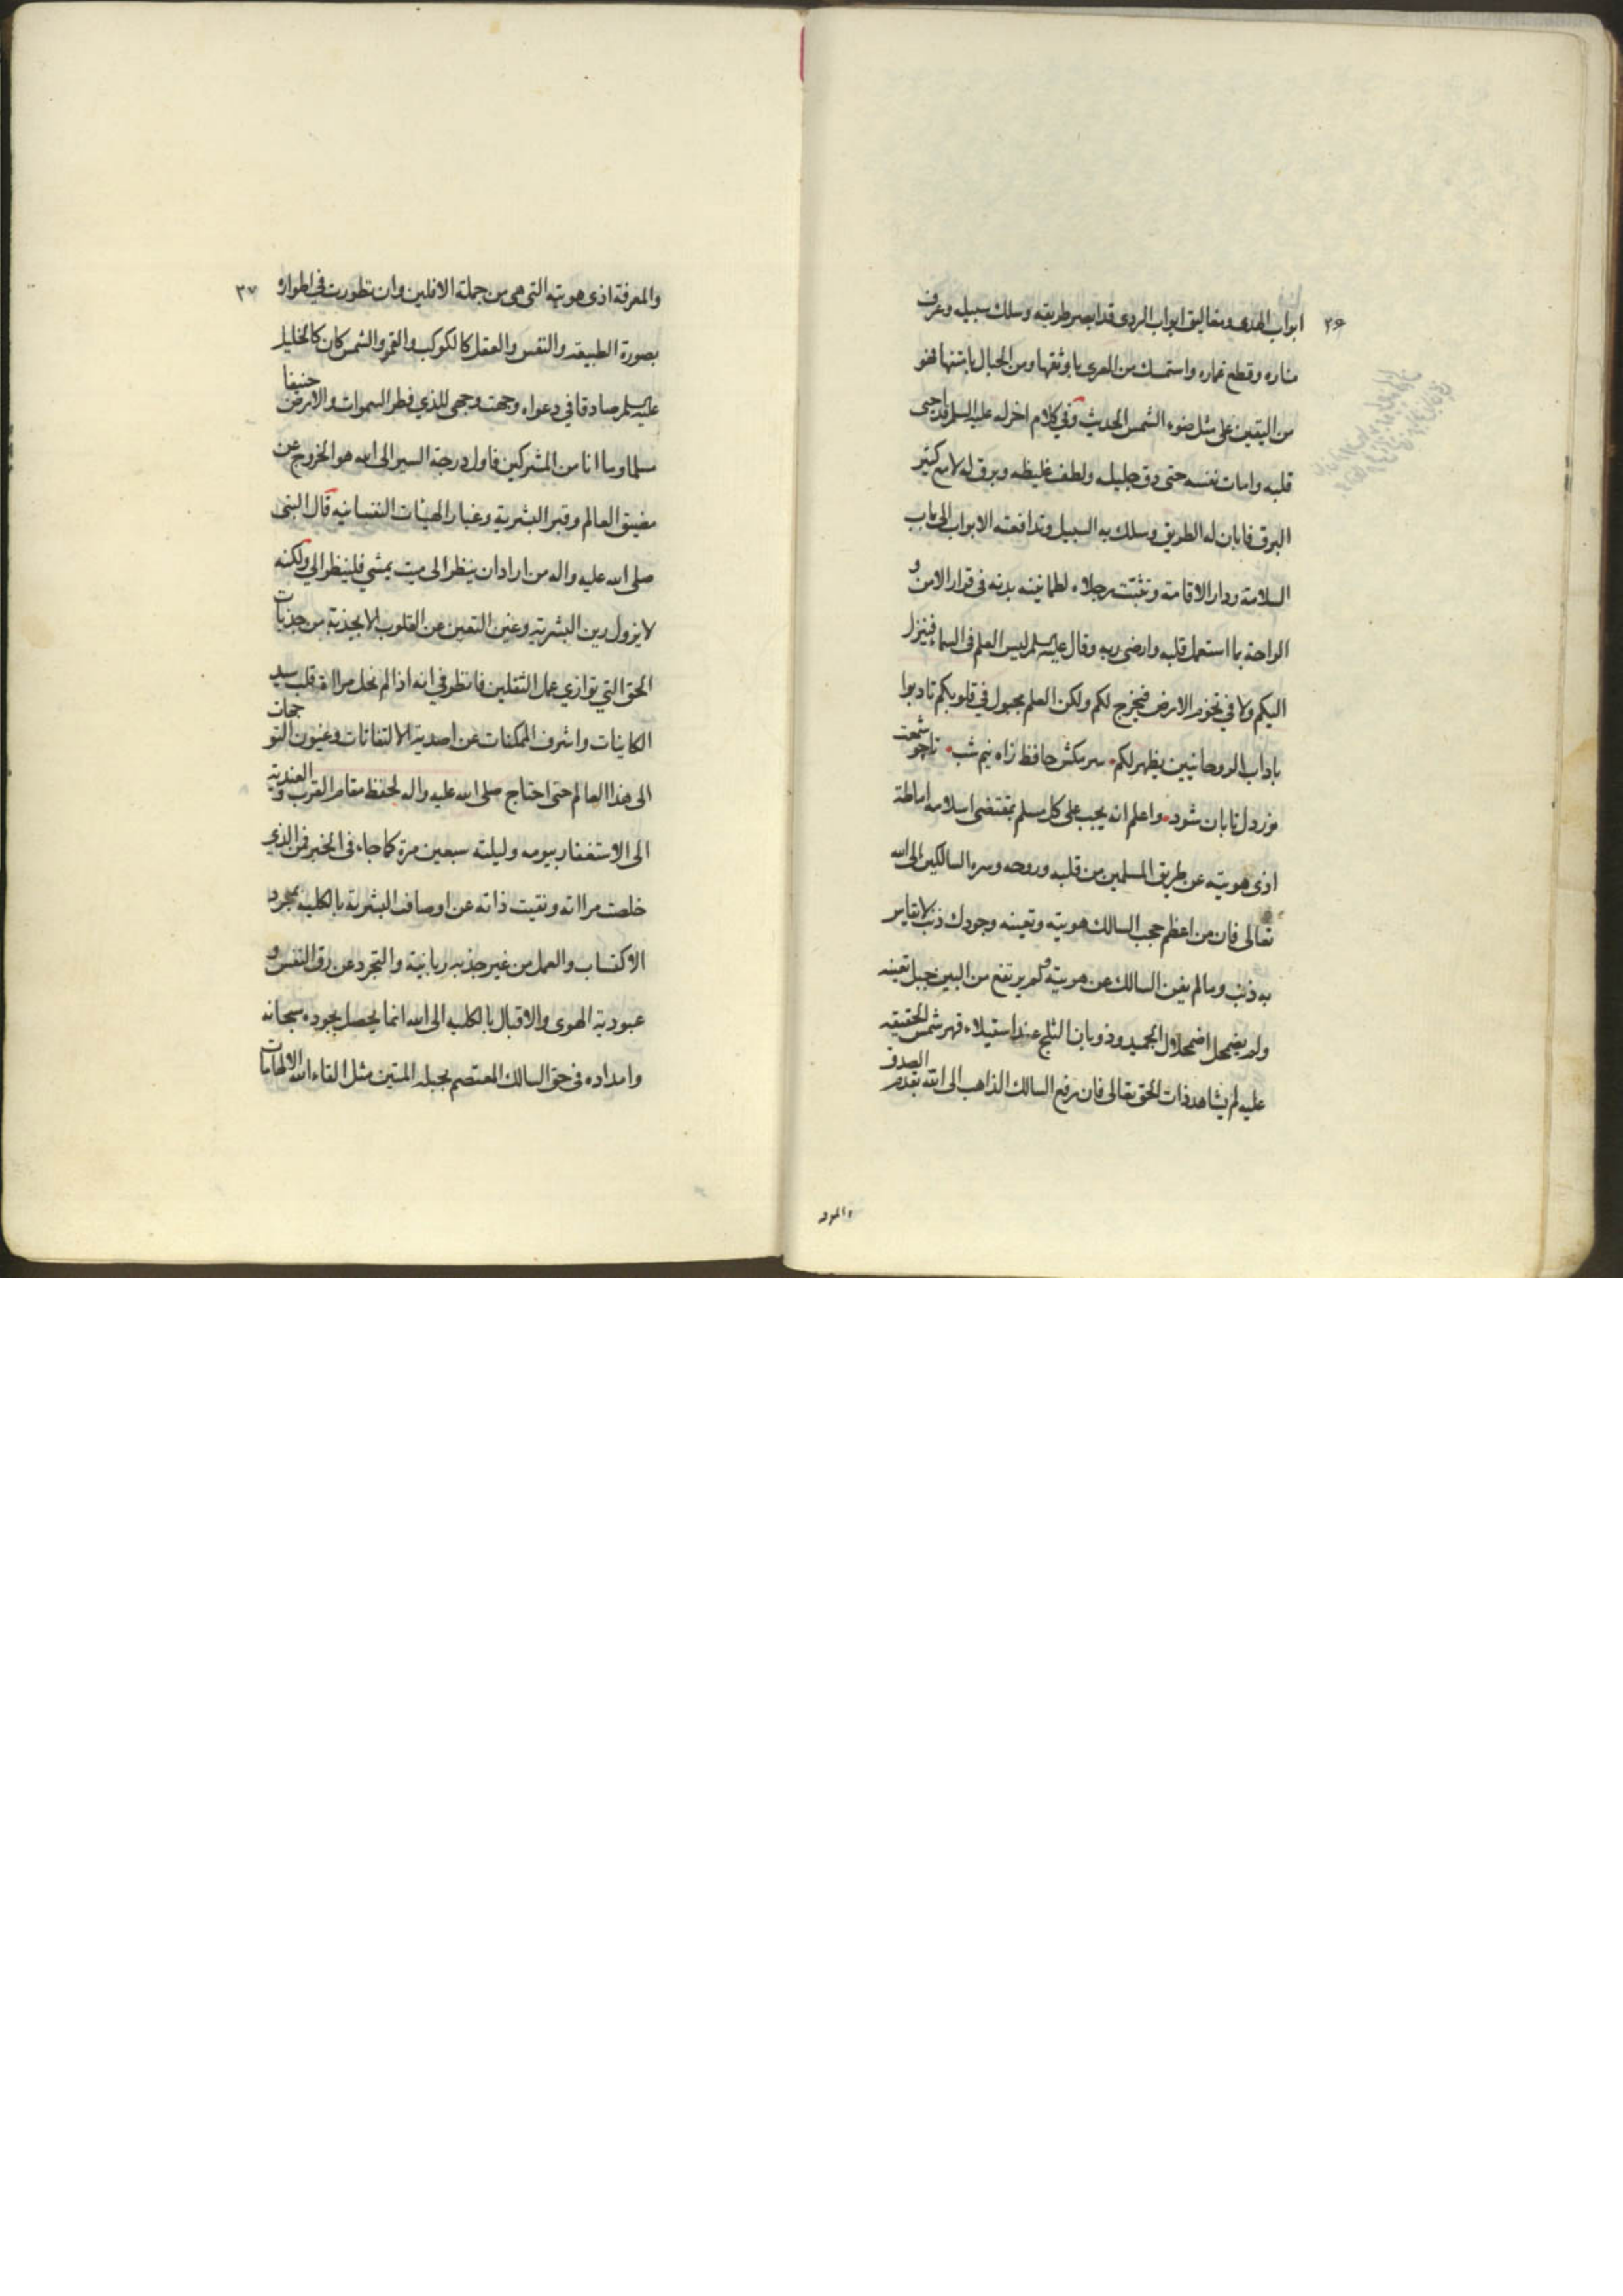 ٢۶
ابواب الهدى ومغاليق ابواب الردى قد ابصر طريقه وسلك سبيله وعرف
مناره وقطع غماره واستمسك من العرى باوثقها ومن الحبال بامتنها فهو
من اليقين على مثل ضوء الشمس الحديث وفي كلام اخر له عليه السلم قد احيى
قلبه وامات نفسه حتى دق جليله ولطف غليظه وبرق له لامع كثير
البرق فابان له الطريق وسلك به السبيل وتدافعته الابواب الى باب
السلامة ودار الاقامة وتثبتت رجلاه لطمانينه بدنه في قرار الامن و
الراحة بما استعمل قلبه وارضى ربه وقال عليه السلم ليس العلم في السما فينزل
اليكم ولا في تخوم الارض فيخرج لكم ولكن العلم مجبول في قلوبكم تادبوا
باداب الروحانيين يظهر لكم سر مكش حافظ زاه نيم شب تا چو شمعت
نور دل تابان شود واعلم انه يجب على كل مسلم بمقتضى اسلامه اماطة
اذى هويته عن طريق المسلمين من قلبه وروحه وسره السالكين الى الله
تعالى فان من اعظم حجب السالك هويته وتعينه وجودك ذنب لا يقاس
به ذنب وما لم يفن السالك عن هويته ولم يرتفع من البين جبل تعينه
ولم يضمحل اضمحلال الجميد وذوبان الثلج عند استيلاء قهر شمس الحقيقه
عليه لم يشاهد ذات الحق تعالى فان رفع السالك الذاهب الى الله بقدم الصدق
والمعرفه
٢٧
والمعرفة اذى هويته التى هى من جملة الافلين وان تطورت في اطوار و
بصورة الطبيعة والنفس والعقل كالكوكب والقمر والشمس كان كالخليل
عليه السلم صادقا في دعواه وجهت وجهى للذي فطر السموات والارض حنيفا
مسلما وما انا من المشركين فاول درجة السير الى الله هو الخروج عن
مضيق العالم وقبر البشرية وغبار الهيئات النفسانيه قال النبى
صلى الله عليه واله من اراد ان ينظر الى ميت يمشي فلينظر الي ولكنه
لا يزول رين البشريه وغين التعين عن القلوب الا بجذبة من جذبات
الحق التي توازي عمل الثقلين فانظر في انه اذا لم تخل مراة قلب سيد
الكاينات واشرف الممكنات عن اصدية الالتفاتات وغيون التوجهات
الى هذا العالم حتى احتاج صلى الله عليه واله لحفظ مقام القرب والعنديه
الى الاستغفار بيومه وليلته سبعين مرة كما جاء في الخبر فمن الذي
خلصت مراته ونقيت ذاته عن اوصاف البشرية بالكلية بمجرد
الاكتساب والعمل من غير جذبه ربانية والتجرد عن رق النفس و
عبودية الهوى والاقبال بالكلية الى الله انما يحصل بجوده سبحانه
وامداده في حق السالك المعتصم بحبله المتين مثل القاء الله الالهامات